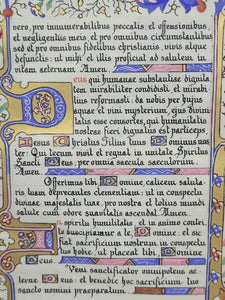 vero, pro innumerabilibus peccatis, et offensionibus,
et negligentiis meis, et pro omnibus circumstantibus
sed et pro omnibus fidelibus christianis, vivis atque
defunctis: ut mihi et illis proficiat ad salutem in
vitam eternam. Amen.
Deus qui humanae substantiae dignita
tem mirabiliter condidisti, et mirabi
lius reformasti: da nobis per hujus
aquae et vini mysterium, ejus divini
tatis esse consortes, qui humanitatis
nostrae fieri dignatus est particeps,
Jesus Christus Filius tuus Dominus nos
ter: Qui tecum vivit et regnat in unitate Spiritus
Sancti Deus: per omnia saecula saeculorum
Amen.
Offerimus tibi Domine, calicem saluta
ris, tuam deprecantes clementiam: ut in conspectu
divinae majestatis tuae, pro nostra et totius mundi
salute cum odore suavitatis ascendat. Amen.
In spiritu humilitatis, et in animo contri
to suscipiamur a te, Domine: et sic fiat
sacrificium nostrum in conspectu
tuo hodie, ut placeat tibi, Domine
Deus.
Veni sanctificator omnipotens ae
terne Deus: et benedic hoc sacrificium, tuo
sancto nomini praeparatum.